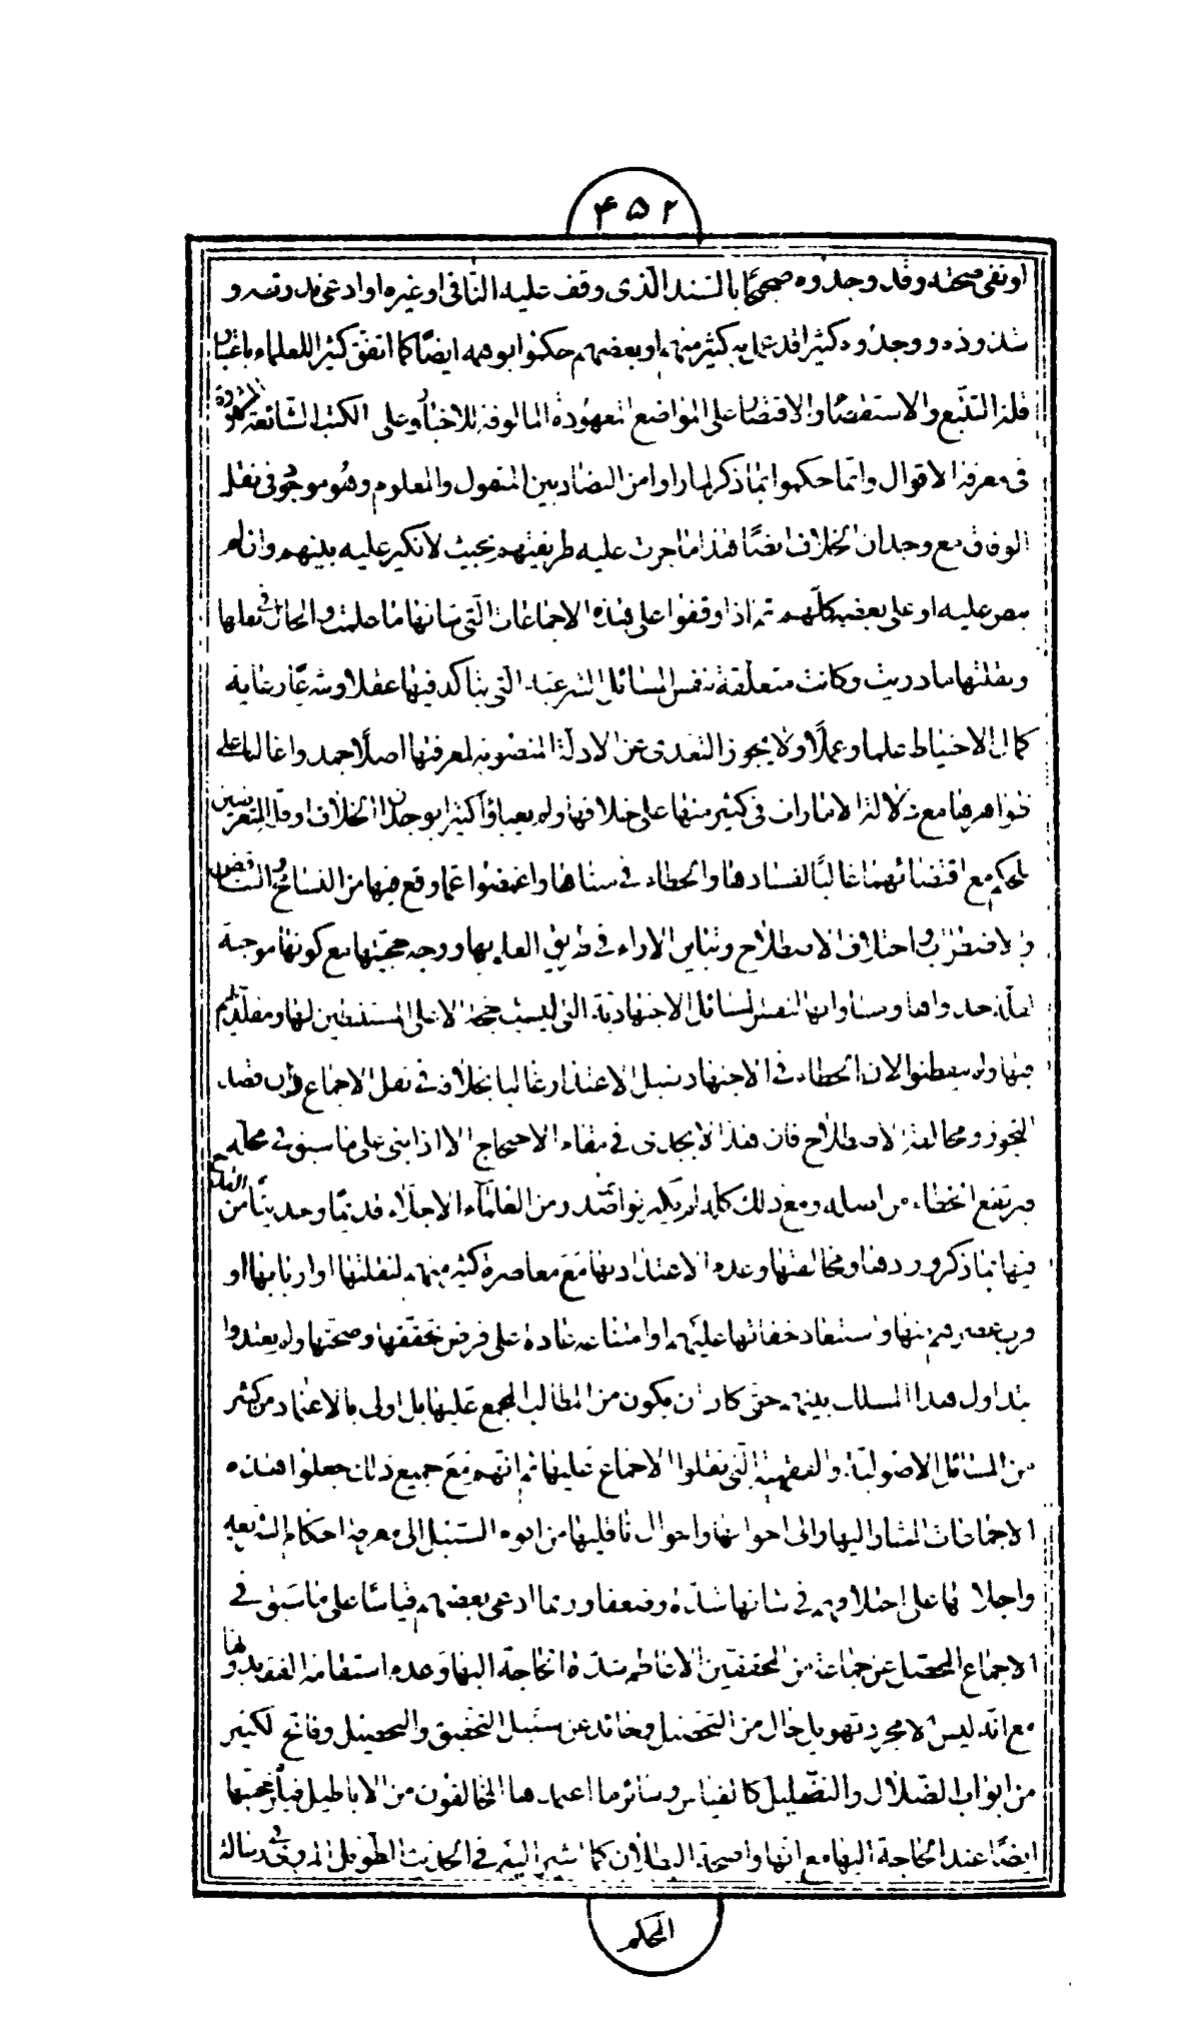 ۴۵۲
او نفى صحته وقد وجدوه صحيحًا بالسند الذى وقف عليه النافى او غيره او ادعى ندرته و
شذوذه ووجدوه كثيرا قد عمل به كثير منهم او بعضهم حكموا بوهمه ايضًا كما اتفق كثيرا للعلماء باعتبار
قلة التتبع والاستقصاء والاقتصار على المواضع المعهودة المالوفة للاخبار وعلى الكتب الشائعة المشهورة
فى معرفة الاقوال وانما حكموا بما ذكر لما راوا من التضاد بين المنقول والمعلوم وهو موجود فى نقل
الوفاق مع وجدان الخلاف ايضًا هذا ما جرت عليه طريقتهم بحيث لا نكير عليه بينهم وان لم
ينص عليه او على بعضه كلهم ثم اذا وقفوا على هذه الاجماعات التى شانها ما علمت والحال فى نقلها
ونقلتها ما دريت وكانت متعلقة بنفس المسائل الشرعية التى يتاكد فيها عقلا وشرعًا رعاية
كمال الاحتياط علما وعملًا ولا يجوز التعدى عن الادلة المنصوبة لمعرفتها اصلًا جمدوا غالبا على
ظواهرها مع دلالة الامارات فى كثير منها على خلافها ولم يعباؤا كثيرا بوجدان الخلاف وقلة المتعرضين
للحكم مع اقتضائهما غالبًا لفسادها والخطاء فى مبناها واغمضوا عما وقع فيها من التسامح والتناقض
والاضطراب واختلاف الاصطلاح وتباين الاراء فى طريق العلم بها ووجه حجيتها مع كونها موجبة
لعدم جدواها ومساواتها لنفس المسائل الاجتهادية التى ليست حجة الا على المستنبطين لها ومقلديهم
فيها ولم يتفطنوا لان الخطاء فى الاجتهاد سبيل الاعتذار غالبا بخلافه فى نقل الاجماع وان قصد
التجوز ومخالفة الاصطلاح فان هذا لا يجدى فى مقام الاحتجاج الا اذا بنى على ما سبق فى محله
فيرتفع الخطاء من اصله ومع ذلك كله لم يكن بواقصد ومن العلماء الاجلاء قديمًا وحديثًا من القدح
فيها بما ذكر وردها ومخالفتها وعدم الاعتداد بها مع معاصرة كثير منهم لنقلتها او اربابها او
قرب عصرهم منها واستبعاد خفائها عليهم او امتناعه عادة على فرض تحققها وصحتها ولم يعتدوا
بتداول هذا المسلك بينهم حتى كاد ان يكون من المطالب المجمع عليها بل اولى بالاعتماد من كثير
من المسائل الاصولية والفقهية التى نقلوا الاجماع عليها ثم انهم مع جميع ذلك جعلوا هذه
الاجماعات المشار اليها والى احوالها واحوال ناقليها من اقوم السبيل الى معرفة احكام الشريعة
واجلاها على اختلافهم فى شانها شدة وضعفا وربما ادعى بعضهم قياسًا على ما سبق فى
الاجماع المحصل عن جماعة من المحققين الاعاظم شدة الحاجة اليها وعدم استقامة الفقه بدونها
مع انه ليس الا مجرد تهويل خال من التحصيل وحائد عن سبيل التحقيق والتحصيل وفاتح لكثير
من ابواب الضلال والتضليل كالقياس وسائر ما اعتمدها المخالفون من الاباطيل فيلزم حجيتها
ايضًا عند الحاجة اليها مع انها واضحة البطلان كما اشير اليه فى الحديث الطويل المروى فى رسالة
المحكم